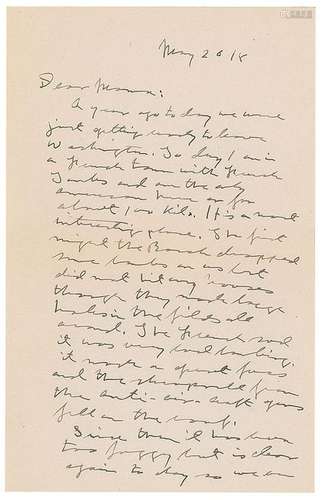 May 20 18
Dear Mama:
A year ago to day we were
just getting ready to leave
Washington. To day I am in
a french town with french
Tanks and am the only
american here or for
about 100 kilo. It's a most
interesting place. The first
night the Bosch dropped
some bombs on us but
did not hit any houses
though they made large
holes in the fields all
around. The french said
it was very bad bombing.
it made a great fuss
and the shrapnell from
the anti-air craft guns
fell on the roof.
Since then it has been
too foggy but is clear
again to day so we can